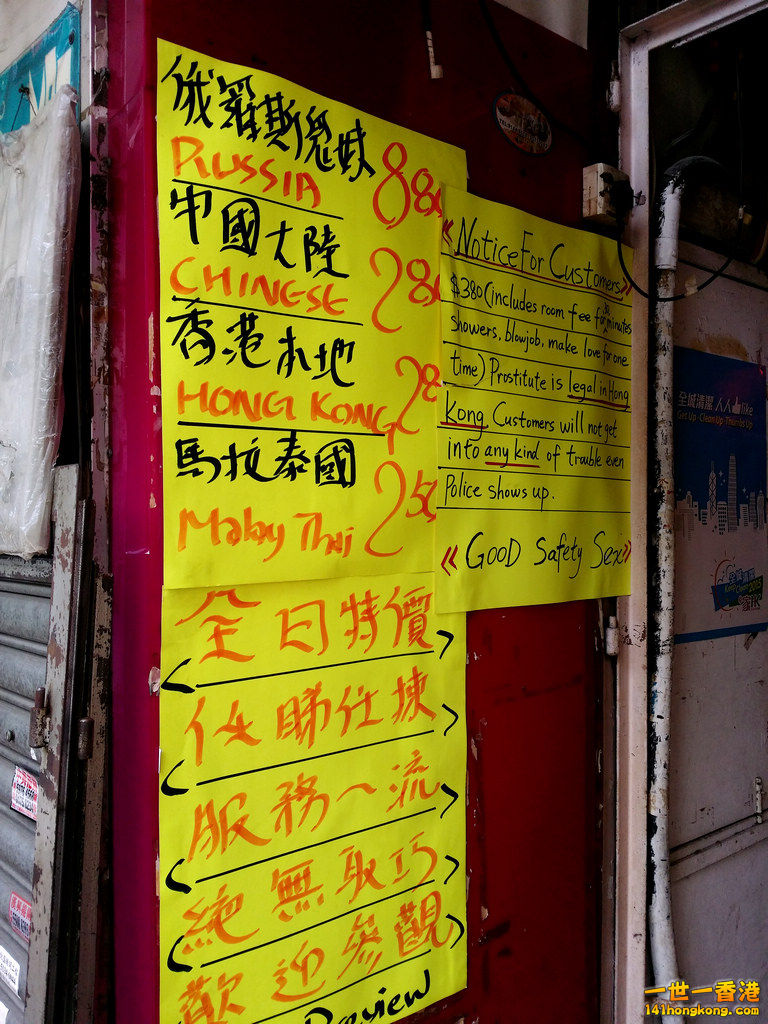 俄羅斯鬼妹
RUSSIA 88
中國大陸
CHINESE 28
香港本地
HONG KONG 28
馬拉泰國
Malay Thai 250
全日特價
任睇任揀
服務一流
絕無取巧
歡迎參觀
《Notice For Customers》
$380 (includes room fee for 30 minutes
showers, blowjob, make love for one
time) Prostitute is legal in Hong
Kong Customers will not get
into any kind of trouble even
Police shows up.
《GOOD Safety Sex》
全城清潔 人人 like
Get Up · Clean Up · Thumbs Up
一世一香港
141hongkong.com